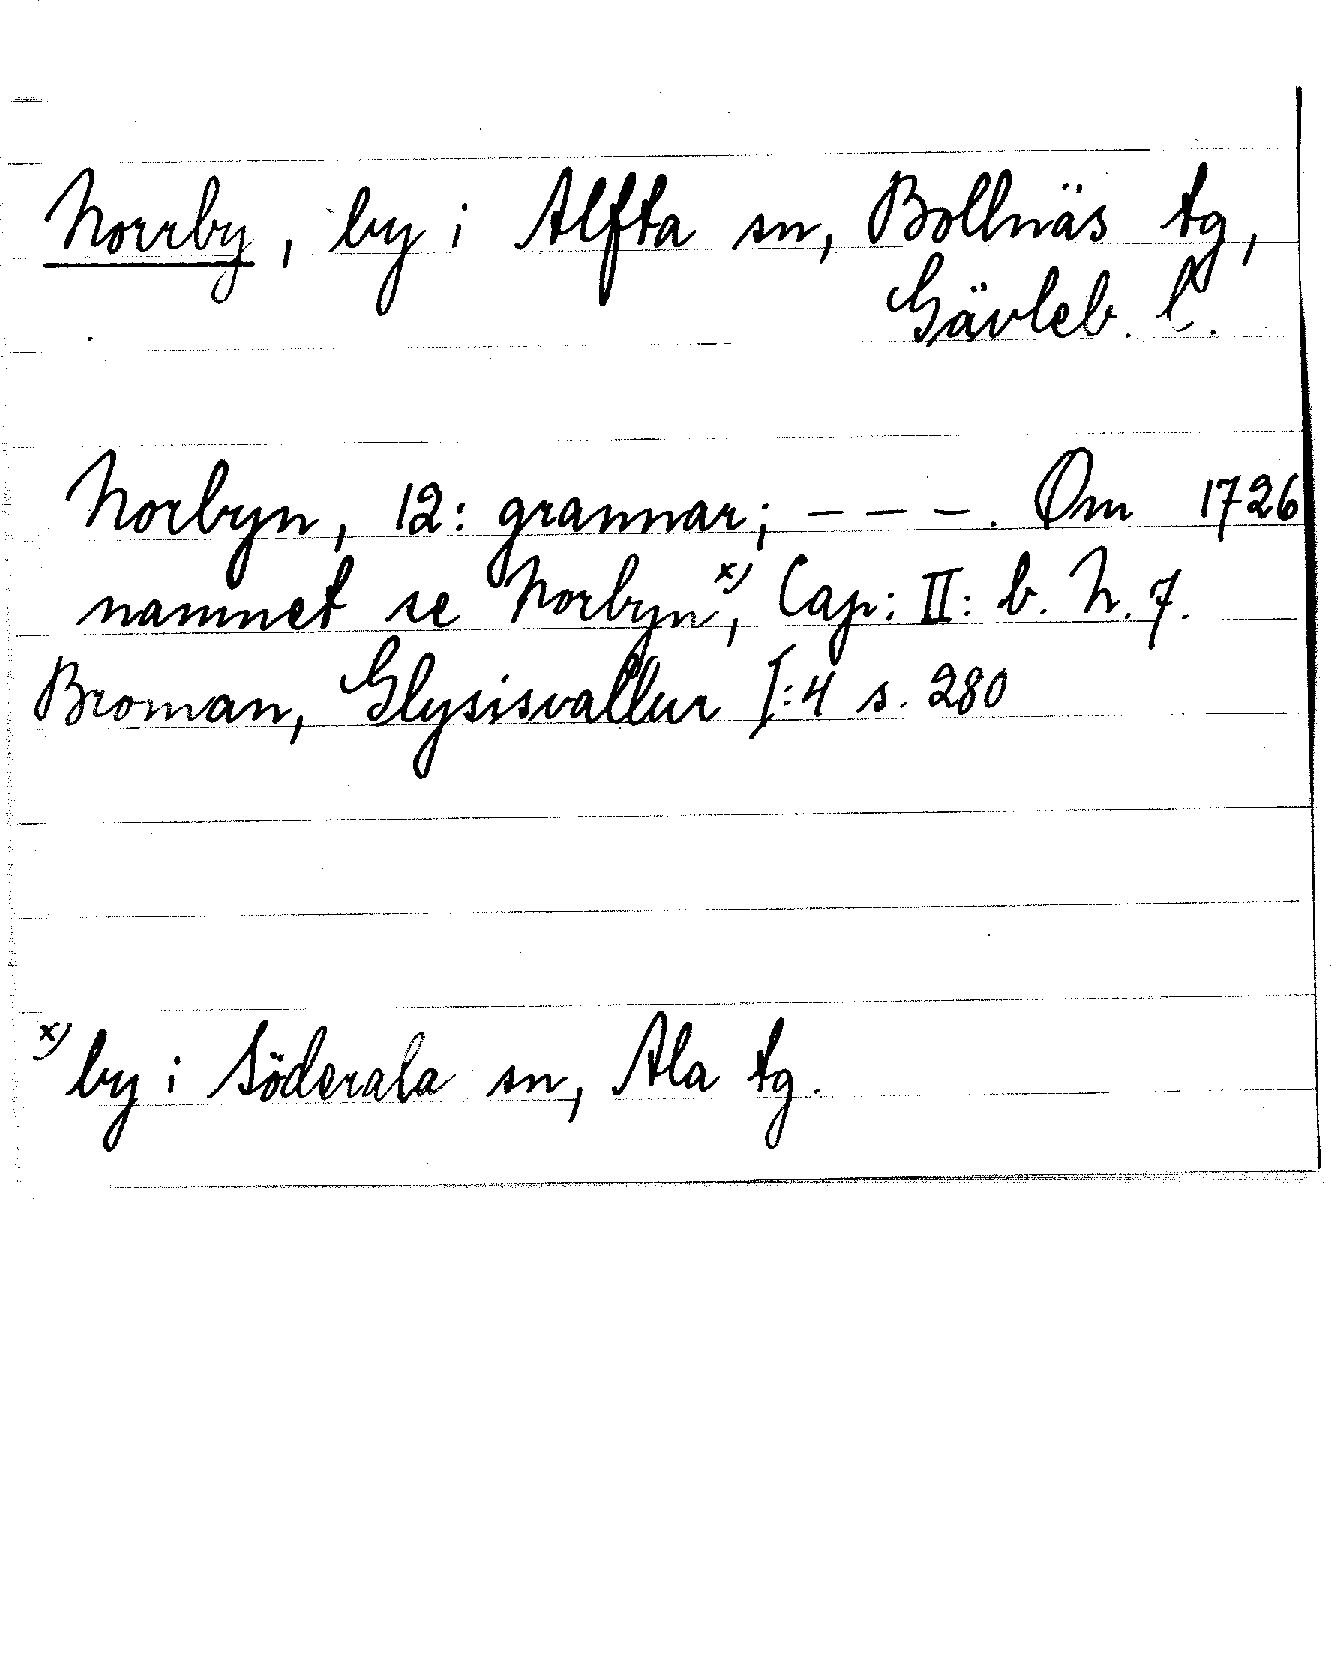 Norrby, by i Alfta sn, Bollnäs tg,
Gävleb. l.
Norbyn, 12: grannar; - - -. Om 1726
namnet se Norbyn x), Cap: II: b. N. 7.
Broman, Glysisvallur I:4 s. 280
x) by i Söderala sn, Ala tg.